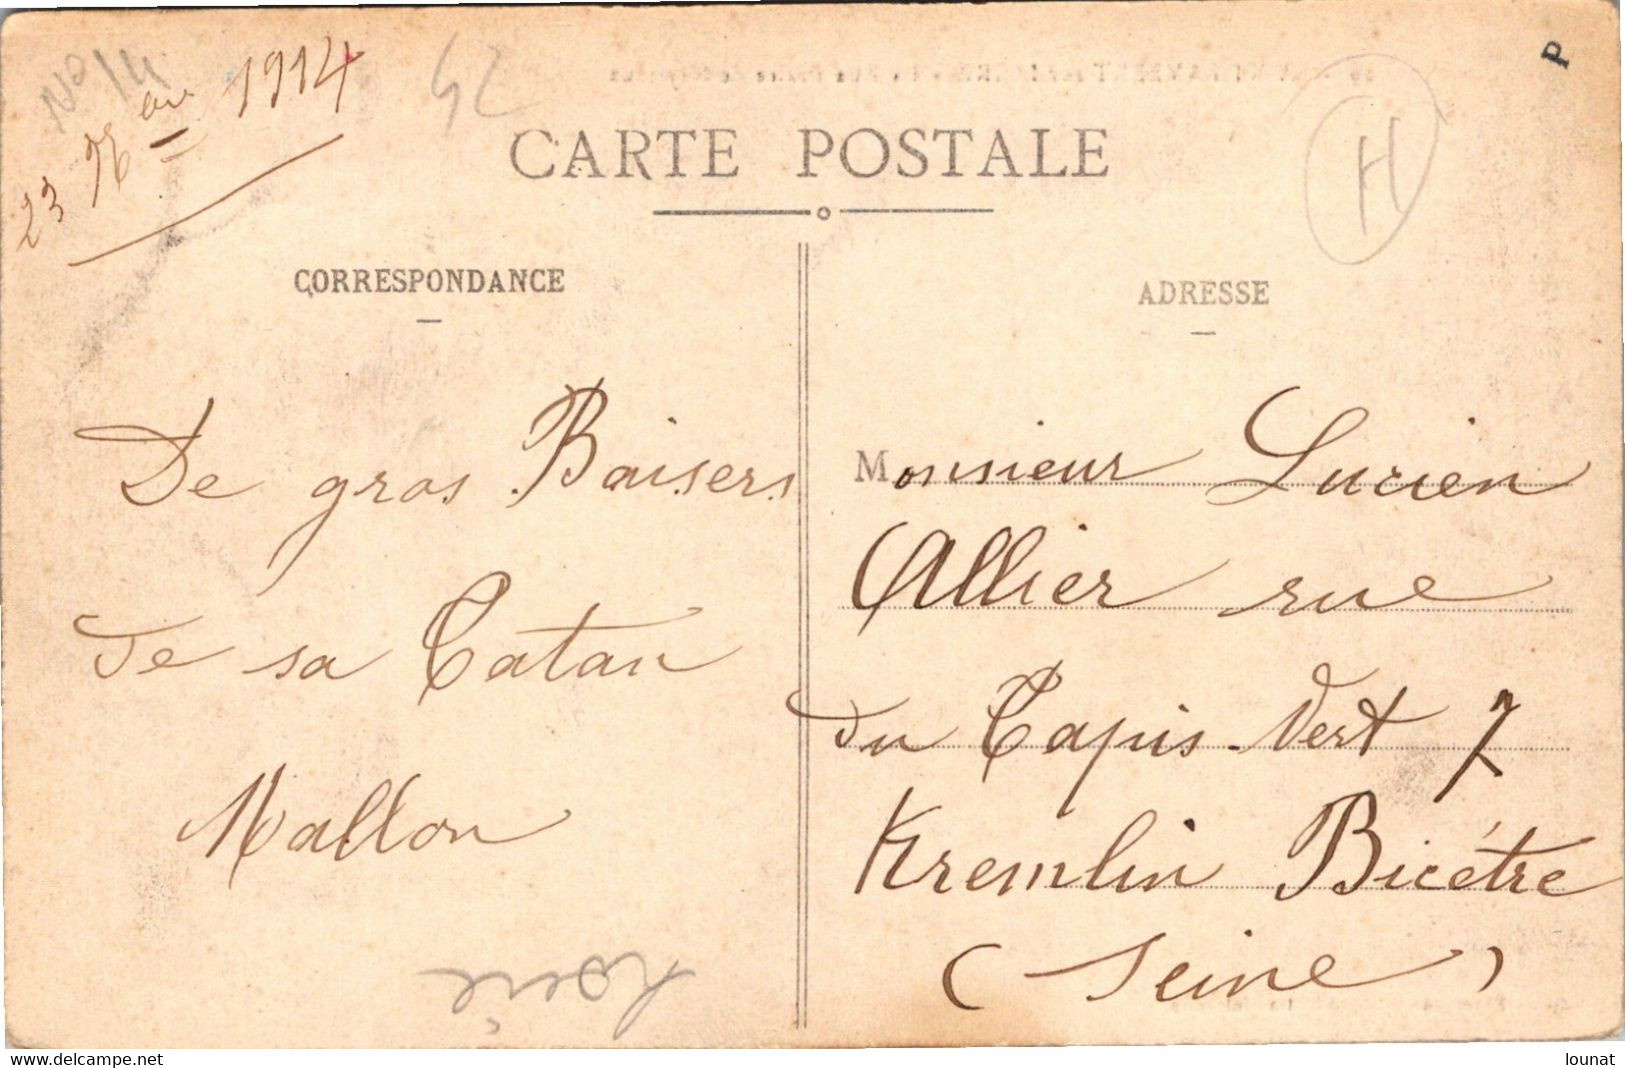 No 14
23 1914
42
P
CARTE POSTALE
H
CORRESPONDANCE
ADRESSE
De gros Baisers
de sa Tatan
Mallon
Monsieur Lucien
Allier rue
du Tapis Vert 7
Kremlin Bicétre
(Seine)
Loire
www.delcampe.net
lounat